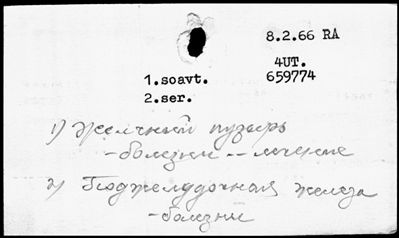 8.2.66 RA
4UT.
659774
1.soavt.
2.ser.
1) Желчный пузырь
-болезни--лечение
2) Поджелудочная железа
-болезни